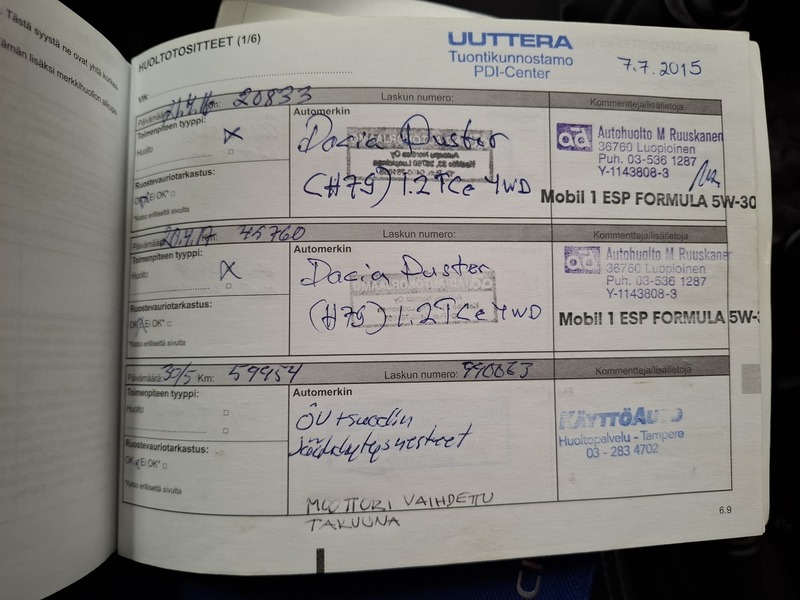 . Tästä syystä ne ovat yhtä
ämän lisäksi merkkihuollon
HUOLTOTOSITTEET (1/6)
UUTTERA
Tuontikunnostamo
PDI-Center
7.7.2015
VIN:
Päivämäärä: 21.4.16 Km: 20833
Laskun numero:
Kommentteja/lisätietoja
Toimenpiteen tyyppi:
Huolto
X
Ruostevauriotarkastus:
OK Ei OK*
*Katso erilliseltä sivulta
Automerkin
Dacia Duster
(H79) 1.2 TCe 4WD
ad Autohuolto M Ruuskanen
36760 Luopioinen
Puh. 03-536 1287
Y-1143808-3
Mobil 1 ESP FORMULA 5W-30
Päivämäärä: 20.4.17 Km: 45760
Laskun numero:
Kommentteja/lisätietoja
Toimenpiteen tyyppi:
Huolto
X
Ruostevauriotarkastus:
OK Ei OK*
*Katso erilliseltä sivulta
Automerkin
Dacia Duster
(H79) 1.2 TCe 4WD
ad Autohuolto M Ruuskanen
36760 Luopioinen
Puh. 03-536 1287
Y-1143808-3
Mobil 1 ESP FORMULA 5W-
Päivämäärä: 30/5 Km: 59954
Laskun numero: 990063
Kommentteja/lisätietoja
Toimenpiteen tyyppi:
Huolto
Ruostevauriotarkastus:
OK Ei OK*
*Katso erilliseltä sivulta
Automerkin
ÖV+suodin
Jäähdytysnesteet
MOOTTORI VAIHDETTU
TAKUUNA
KÄYTTÖAUTO
Huoltopalvelu - Tampere
03 - 283 4702
6.9